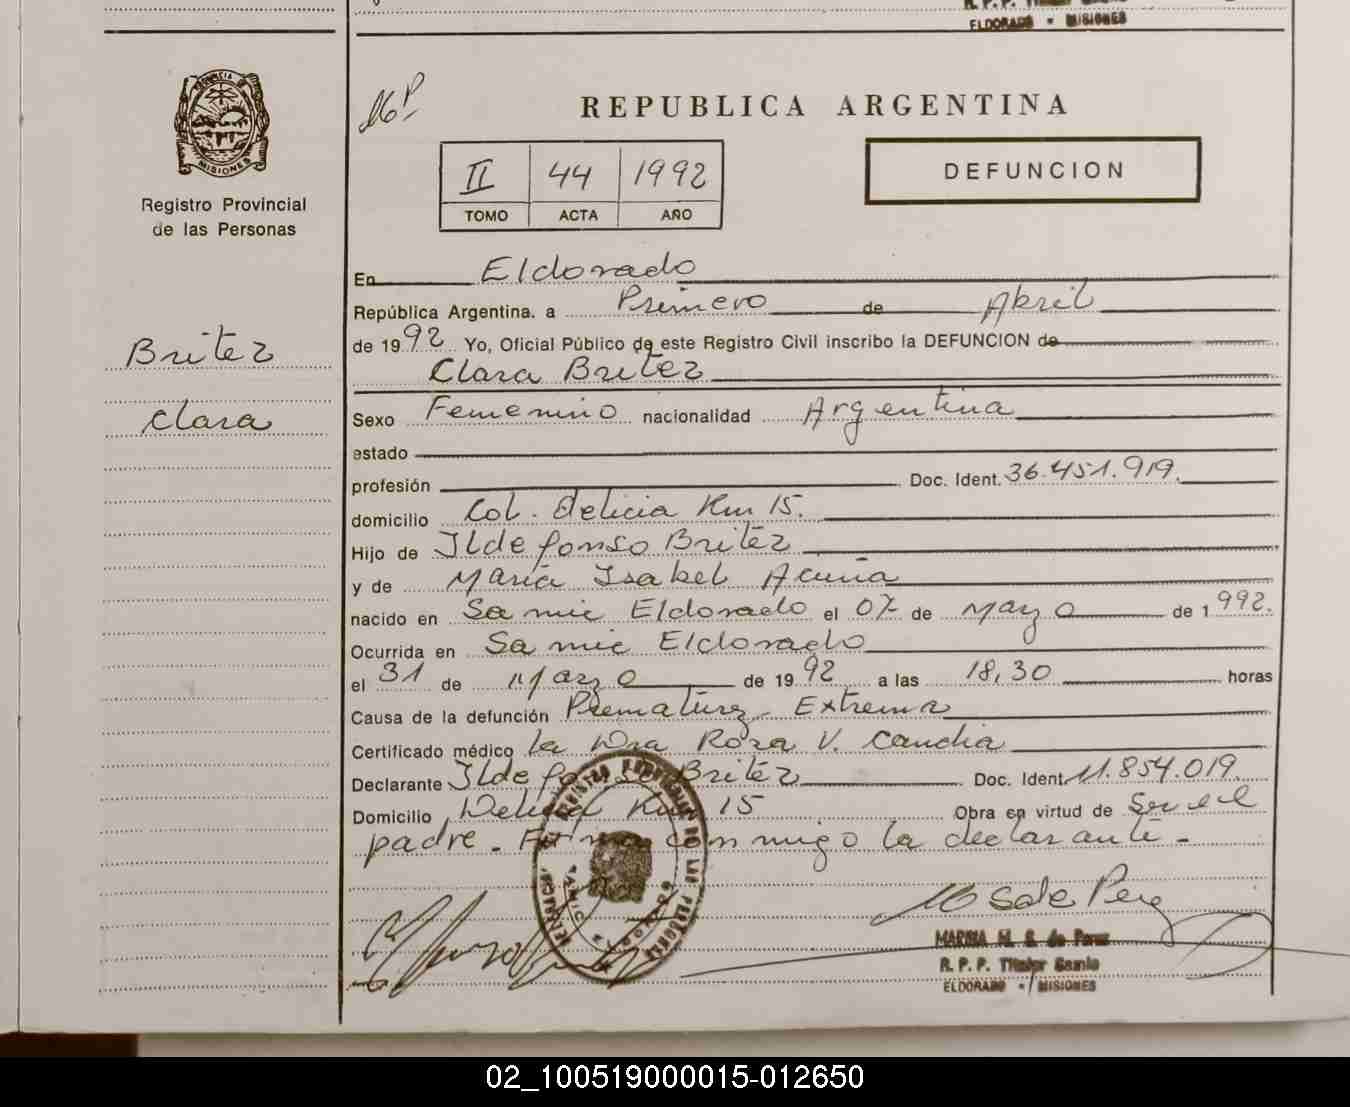 ELDORADO - MISIONES
PROVINCIA DE
MISIONES
Registro Provincial
de las Personas
Britez
Clara
REPUBLICA ARGENTINA
II 44 1992
TOMO ACTA AÑO
DEFUNCION
En Eldorado
República Argentina. a Primero de Abril
de 1992 Yo, Oficial Público de este Registro Civil inscribo la DEFUNCION de
Clara Britez
Sexo Femenino nacionalidad Argentina
estado
profesión Doc. Ident. 36.451.919.
domicilio Col. Delicia Km 15.
Hijo de Ildefonso Britez
y de María Isabel Acuña
nacido en Samic Eldorado el 07 de Marzo de 1992.
Ocurrida en Samic Eldorado
el 31 de Marzo de 1992 a las 18,30 horas
Causa de la defunción Prematurez Extrema
Certificado médico La Dra Rosa V. Candia
Declarante Ildefonso Britez Doc. Ident. 11.854.019.
Domicilio Delicia Km 15 Obra en virtud de Ser el
padre. Firma conmigo la declarante.-
MARINA M. S. de Perez
R. P. P. Titular Samic
ELDORADO - MISIONES
02_100519000015-012650